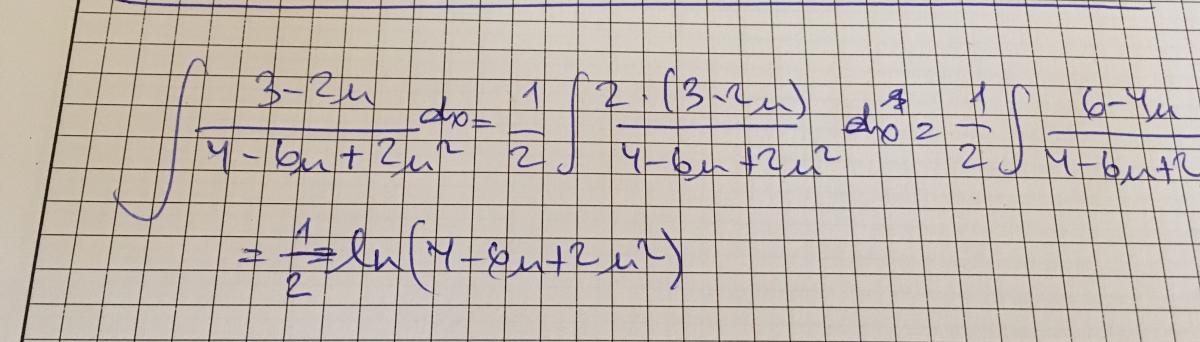 ∫ (3-2u)/(4-6u+2u²) dx = 1/2 ∫ 2·(3-2u)/(4-6u+2u²) dx = 1/2 ∫ (6-4u)/(4-6u+2
= 1/2 = ln(4-6u+2u²)